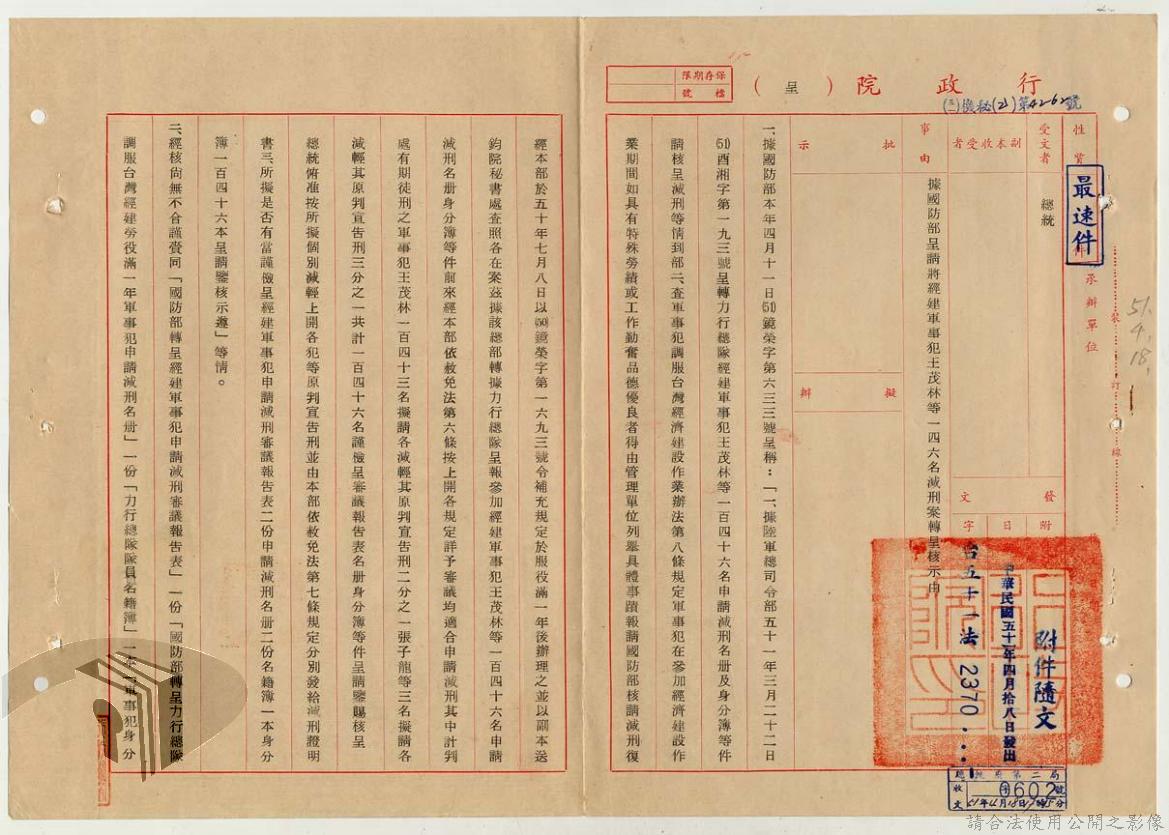 行政院（呈）
保存期限
檔號
(三)機秘(2)第4262號
性質
最速件
承辦單位
裝訂線
51.4.18.
受文者
總統
副本收受者
發文
附
日
字
附件隨文
中華民國五十一年四月拾八日發出
台五十一法 2370
事由
據國防部呈請將經建軍事犯王茂林等一四六名減刑案轉呈核示由
批示
擬辦
一、據國防部本年四月十一日(51)鏡榮字第六三三號呈稱：「一、據陸軍總司令部五十一年三月二十二日
(51)酉湘字第一九三號呈轉力行總隊經建軍事犯王茂林等一百四十六名申請減刑名册及身分簿等件
請核呈減刑等情到部二、查軍事犯調服台灣經濟建設作業辦法第八條規定軍事犯在參加經濟建設作
業期間如具有特殊勞績或工作勤奮品德優良者得由管理單位列舉具體事蹟報請國防部核請減刑復
經本部於五十年七月八日以(50)鏡榮字第一六九三號令補充規定於服役滿一年後辦理之並以副本送
鈞院秘書處查照各在案茲據該總部轉據力行總隊呈報參加經建軍事犯王茂林等一百四十六名申請
減刑名册身分簿等件前來經本部依赦免法第六條按上開各規定詳予審議均適合申請減刑其中計判
處有期徒刑之軍事犯王茂林一百四十三名擬請各減輕其原判宣告刑二分之一張子龍等三名擬請各
減輕其原判宣告刑三分之一共計一百四十六名謹檢呈審議報告表名册身分簿等件呈請鑒賜核呈
總統俯准按所擬個別減輕上開各犯等原判宣告刑並由本部依赦免法第七條規定分別發給減刑證明
書三、所擬是否有當謹檢呈經建軍事犯申請減刑審議報告表二份申請減刑名册二份名籍簿一本身分
簿一百四十六本呈請鑒核示遵」等情。
二、經核尙無不合謹賫同「國防部轉呈經建軍事犯申請減刑審議報告表」一份「國防部轉呈力行總隊
調服台灣經建勞役滿一年軍事犯申請減刑名册」一份「力行總隊隊員名籍簿」一本「軍事犯身分
總統府第二局
收文
0602號
51年4月18日
請合法使用公開之影像